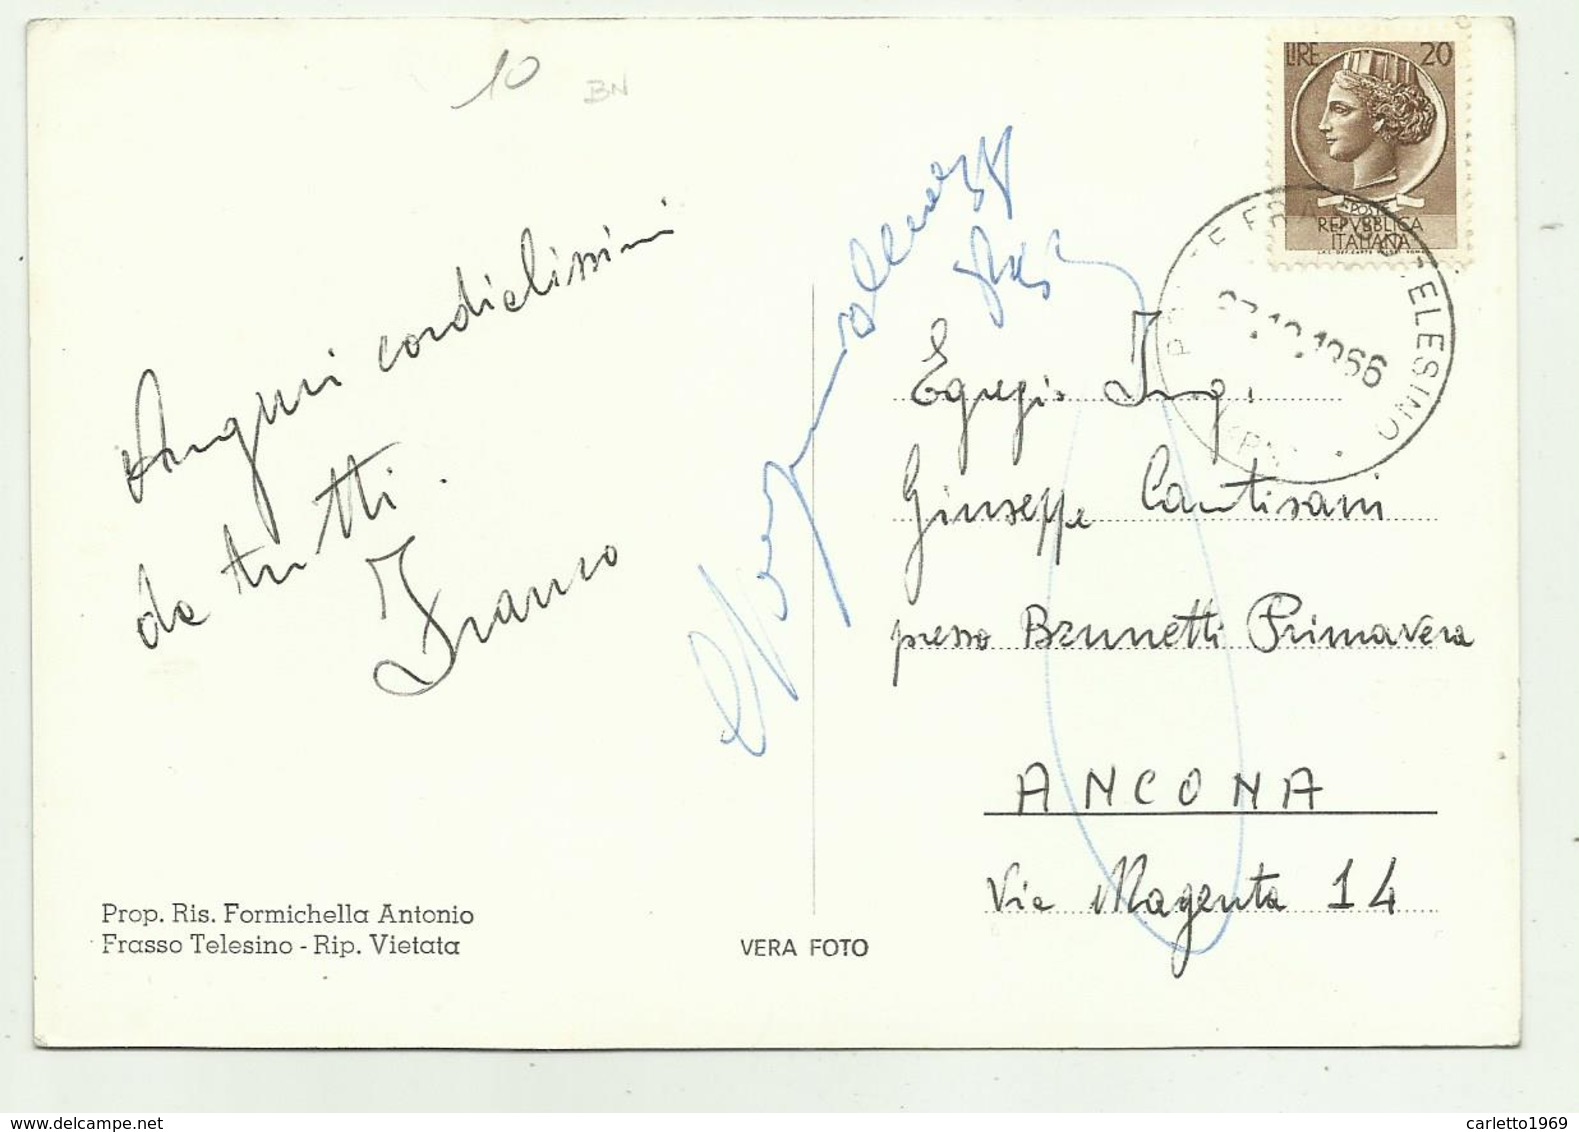 10
BN
LIRE 20
POSTE
REPVBBLICA
ITALIANA
FRASSO TELESINO
1966
Auguri cordialissimi
da tutti.
Franco
Egregio Ing.
Giuseppe Cantisani
presso Brunetti Primavera
ANCONA
Via Magenta 14
Prop. Ris. Formichella Antonio
Frasso Telesino - Rip. Vietata
VERA FOTO
carletto1969